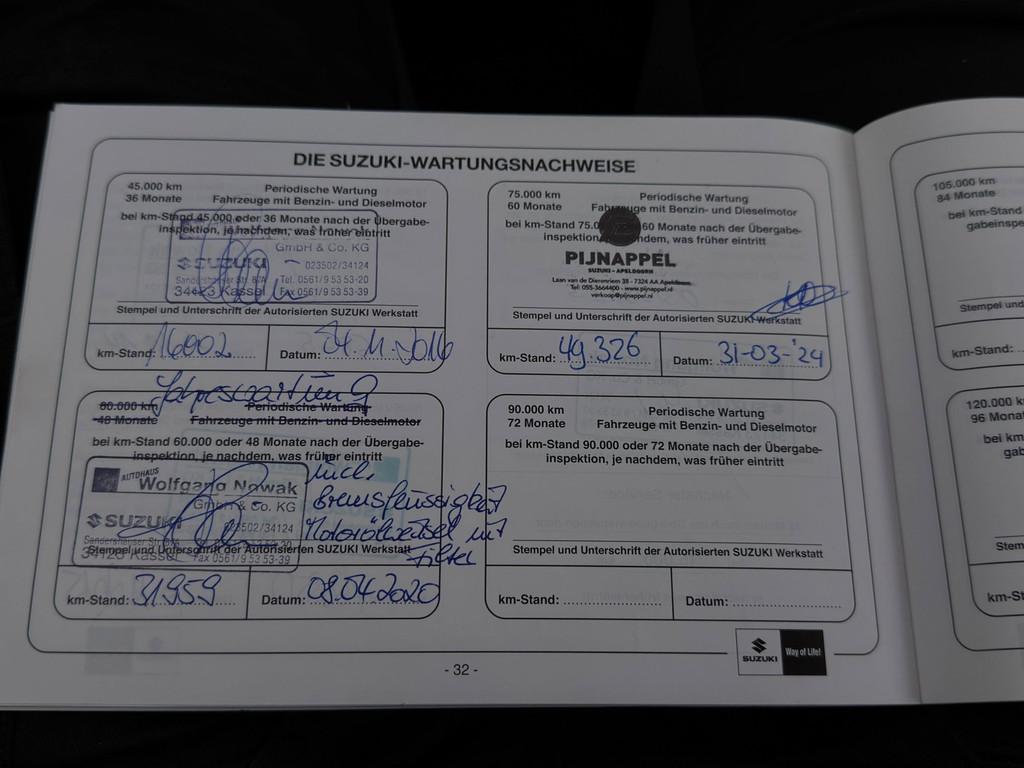 DIE SUZUKI-WARTUNGSNACHWEISE
45.000 km Periodische Wartung
36 Monate Fahrzeuge mit Benzin- und Dieselmotor
bei km-Stand 45.000 oder 36 Monate nach der Übergabe-
inspektion, je nachdem, was früher eintritt
GmbH & Co. KG
SUZUKI 023502/34124
Sandershäuser Str. 87A Tel. 0561/9 53 53-20
34123 Kassel Fax 0561/9 53 53-39
Stempel und Unterschrift der Autorisierten SUZUKI Werkstatt
km-Stand: 16002 Datum: 24.11.2016
75.000 km Periodische Wartung
60 Monate Fahrzeuge mit Benzin- und Dieselmotor
bei km-Stand 75.0 60 Monate nach der Übergabe-
inspektion, ndem, was früher eintritt
PIJNAPPEL
SUZUKI - APELDOORN
Laan van de Dierenriem 38 - 7324 AA Apeldoorn
Tel: 055-3664400 - www.pijnappel.nl
verkoop@pijnappel.nl
Stempel und Unterschrift der Autorisierten SUZUKI Werkstatt
km-Stand: 49.326 Datum: 31-03-'24
Jahreswartung
60.000 km Periodische Wartung
48 Monate Fahrzeuge mit Benzin- und Dieselmotor
bei km-Stand 60.000 oder 48 Monate nach der Übergabe-
inspektion, je nachdem, was früher eintritt
AUTOHAUS
Wolfgang Nowak
GmbH & Co. KG
SUZUKI 023502/34124
Sandershäuser Str. 87A
34123 Kassel Fax 0561/9 53 53-39
incl.
Bremsflüssigkeit
Motorölwechsel mit
Filter
Stempel und Unterschrift der Autorisierten SUZUKI Werkstatt
km-Stand: 31959 Datum: 08.04.2020
90.000 km Periodische Wartung
72 Monate Fahrzeuge mit Benzin- und Dieselmotor
bei km-Stand 90.000 oder 72 Monate nach der Übergabe-
inspektion, je nachdem, was früher eintritt
Stempel und Unterschrift der Autorisierten SUZUKI Werkstatt
km-Stand: Datum:
SUZUKI Way of Life!
- 32 -
105.000 km
84 Monate
bei km-Stand
gabeinspe
Stempel und
km-Stand:
120.000 km
96 Monat
bei km
gab
Stem
km-St